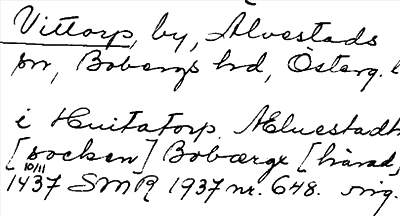 Vittorp, by, Alvestads
sn, Bobergs hd, Österg. l
i Huitatorp Æluestadh
[socken] Boberge [härad,
10/11
1437 SMR 1937 nr. 648. orig.